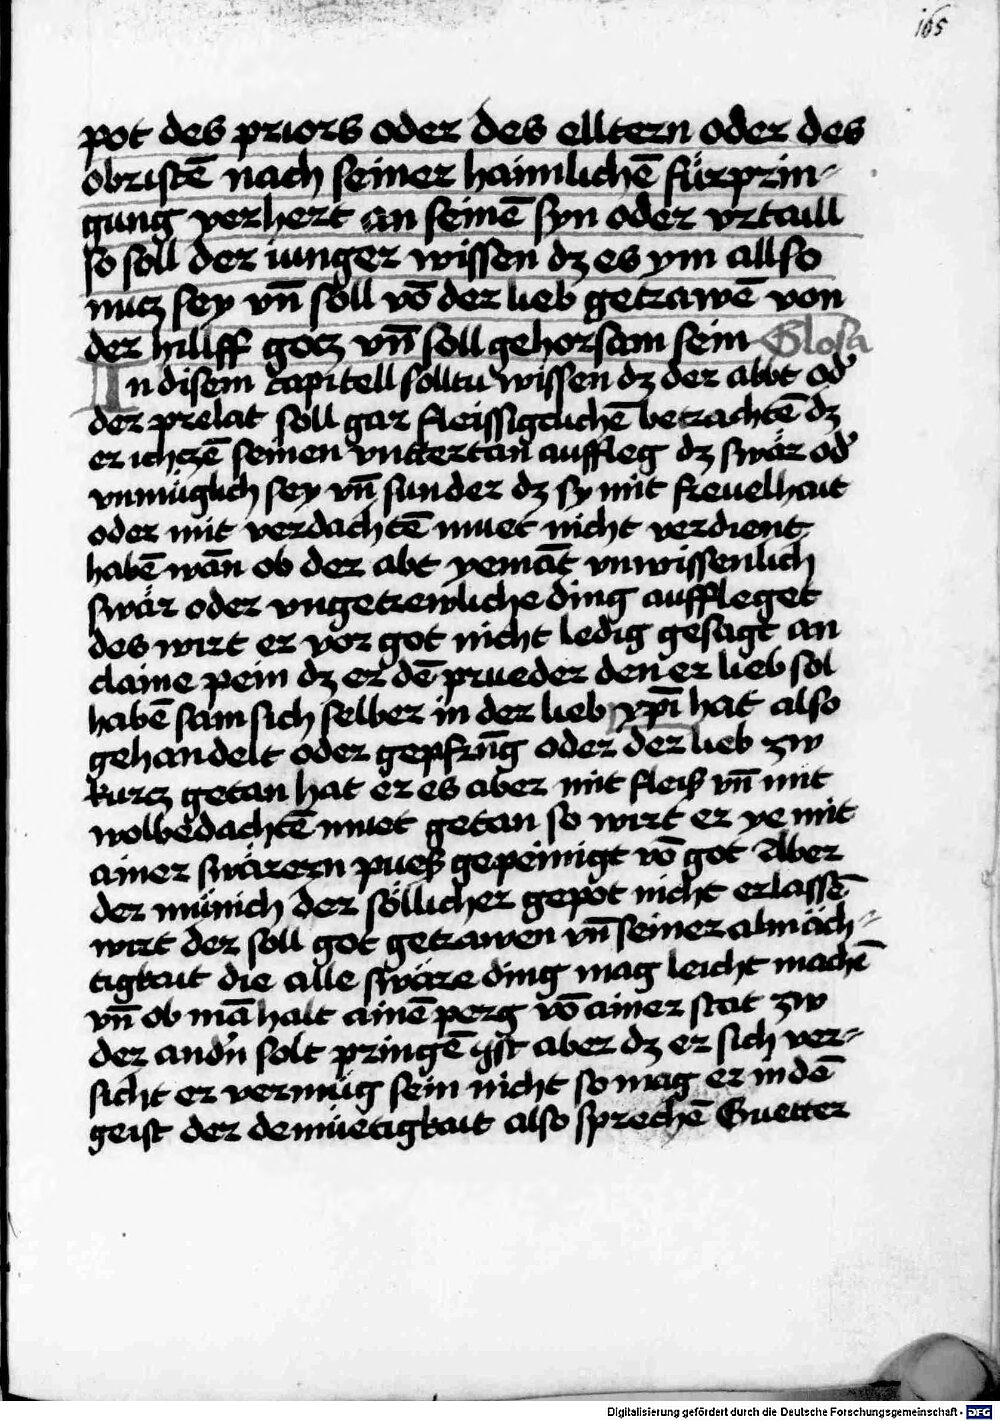 165
pot des priors oder des elltern oder des
obristē nach seiner haimlichē fürprin-
gung verhert an seinē syn oder vrtaill
so soll der iunger wissen dz es ym allso
nutz sey vn̄ soll vō der lieb getrawē von
der hillff gotz vn̄ soll gehorsam sein Glosa
In disem capitell solltu wissen dz der abbt od'
der prelat soll gar fleissigclichē betrachtē dz
er ichczē seinen vnttertan̄ auffleg dz swär od'
vnmüglich sey vn̄ sunder dz sy mit freuelhait
oder mit verdachtē muet nicht verdient
habē wān ob der abt yemāt vnwissenlich
swär oder vngetrewliche ding auffleget
des wirt er vor got nicht ledig gesagt an
claine pein dz er dē prueder den er lieb sol
habē sam sich selber in der lieb xp̄i hat also
gehandelt oder gepfrn̄g oder der lieb zw
kurcz getan hat er es aber mit fleiß vn̄ mit
wolbedachtē muet getan so wirt er ye mit
ainer swärern pueß gepeinigt vō got Aber
der münich der söllicher gepot nicht erlassē
wirt der soll got getrawen vn̄ seiner almäch-
tigkait die alle swäre ding mag leicht machē
vn̄ ob mā halt ainē perg vō ainer stat zw
der and'n solt pringē ist aber dz er sich ver-
sicht er vermüg sein nicht so mag er in dē
geist der demüetigkait also sprechē Guetter
Digitalisierung gefördert durch die Deutsche Forschungsgemeinschaft - DFG